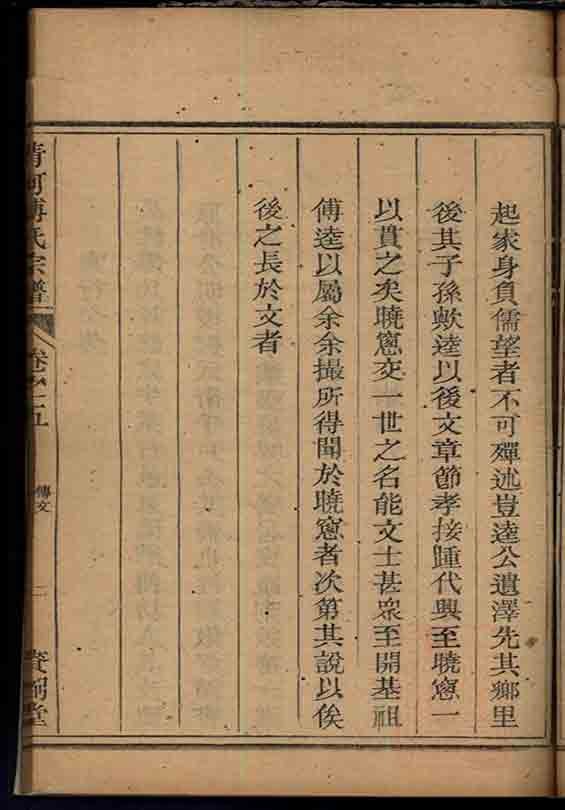 起家身負儒望者不可殫述豈逵公遺澤先其鄉里
後其子孫歟逵以後文章節孝接踵代興至曉窻一
以貫之矣曉窻交一世之名能文士甚眾至開基祖
傅逵以屬余余撮所得聞於曉窻者次第其說以俟
後之長於文者
清河傅氏宗譜
卷之五
傳文
二
堂